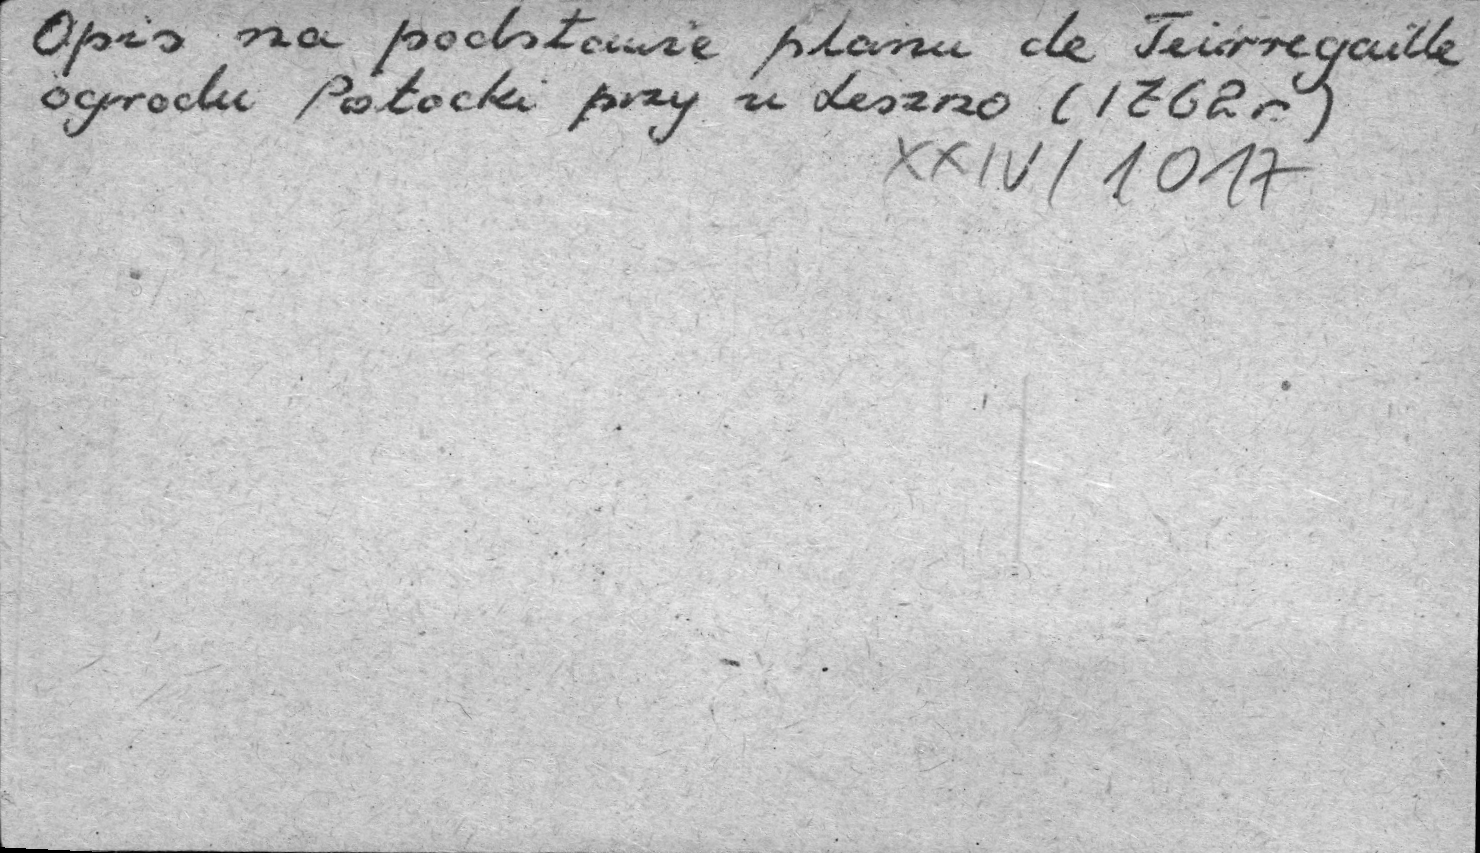 Opis na podstawie planu de Teirregaille
ogrodu Potocki przy u Leszno (1762 r)
XXIV/1017